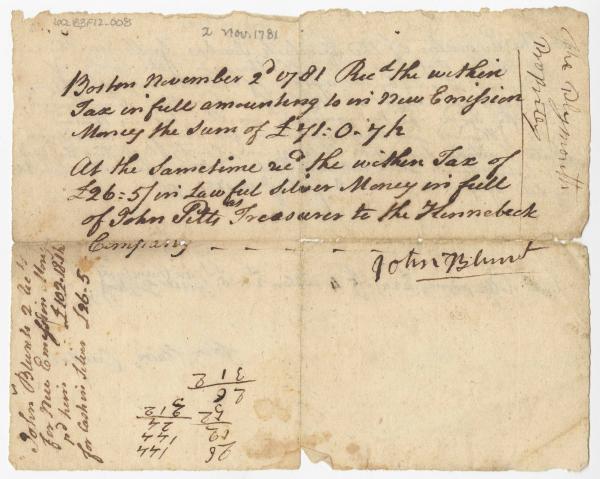 6283F12_008
2 Nov. 1781
Boston November 2d 1781 Recd the within
Tax in full amounting to in New Emission
Money the Sum of £71:0-7½
At the same time recd the within Tax of
£26:5/ in Lawful Silver Money in full
of John Pitts as Treasurer to the Kennebeck
Company
John Blunt
The Plymouth
Propriey
John Blunts 2 Rects
for New Emission Mony
pd him £102
for Cash in Silver £26:5
26 144
144
52 24
312
26
312